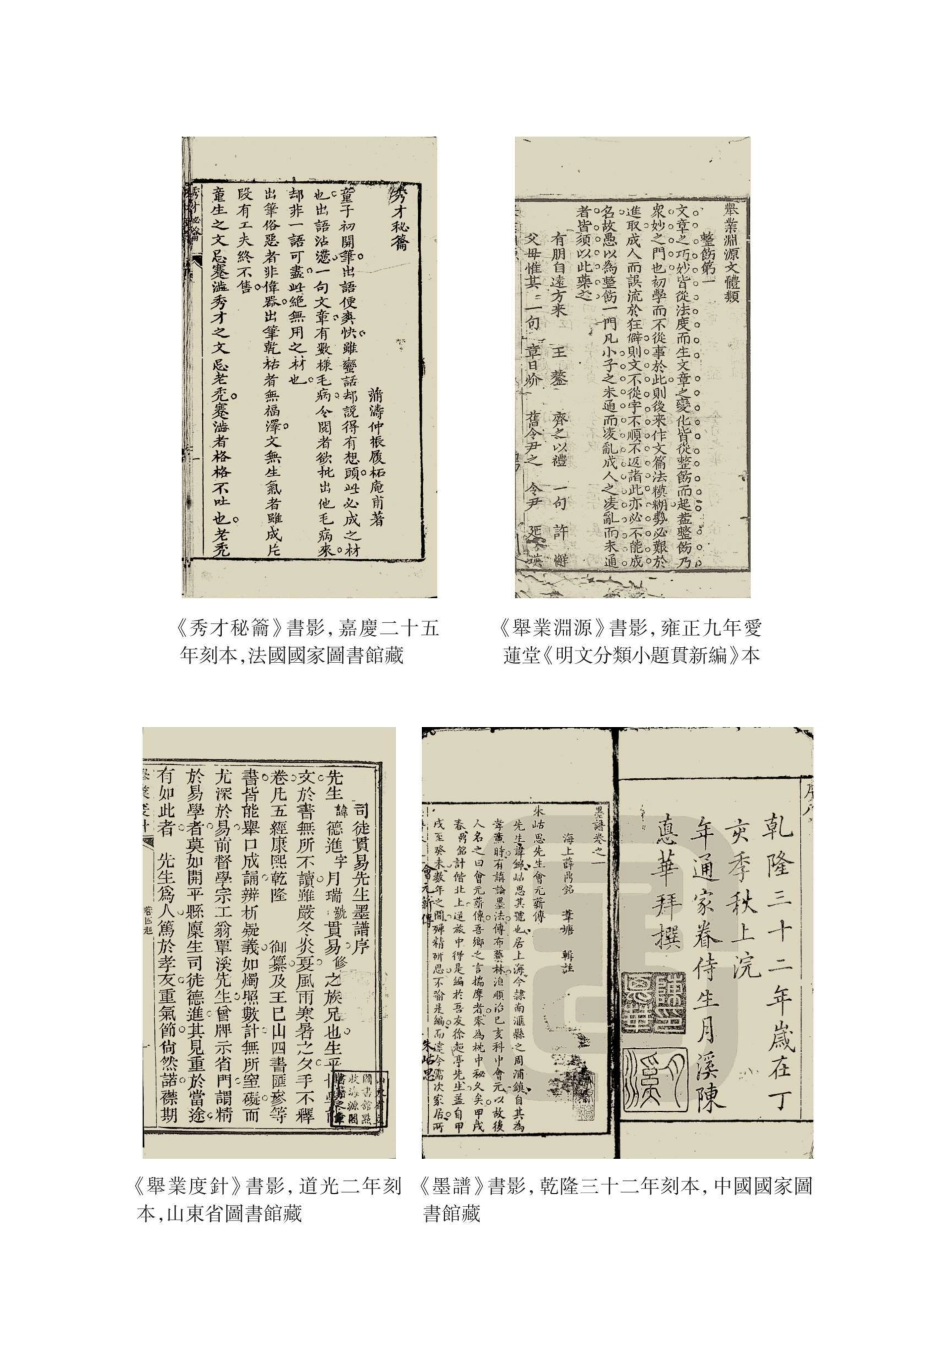 秀才秘籥
蒲濤仲振履柘庵甫著
童子初開筆出語便爽快雖蠻話却說得有想頭此必成之材
也出語沾濡一句文章有數樣毛病令閱者欲批出他毛病來
却非一語可盡此絕無用之材也
出筆俗惡者非偉器出筆乾枯者無福澤文無生氣者雖成片
段有工夫終不售
童生之文忌蹇澁秀才之文忌老禿蹇澁者格格不吐也老禿
秀才秘籥 一
舉業淵源文體類
整飭第一
文章之巧妙皆從法度而生文章之變化皆從整飭而起蓋整飭乃
衆妙之門也初學而不從事於此則後來作文篇法模糊勢必艱於
進取成人而誤流於狂僻則文不從字不順不返諸此亦必不能成
名故愚以為整飭一門凡小子之未通而凌亂成人之凌亂而未通
者皆須以此藥之
有朋自遠方來 王鏊 齊之以禮 一句 許獬
父母惟其 一句 章日炌 舊令尹之 令尹
《秀才秘籥》書影，嘉慶二十五
年刻本，法國國家圖書館藏
《舉業淵源》書影，雍正九年愛
蓮堂《明文分類小題貫新編》本
司徒貫易先生墨譜序
先生諱德進字月瑞號貫易修之族兄也生平
文於書無所不讀雖嚴冬炎夏風雨寒暑之夕手不釋
卷凡五經康熙乾隆 御纂及王巳山四書匯參等
書皆能舉口成誦辨析疑義如燭照數計無所窒礙而
尤深於易前督學宗工翁覃溪先生曾牌示省門謂精
於易學者莫如開平縣廩生司徒德進其見重於當途
有如此者 先生為人篤於孝友重氣節尚然諾襟期
墨譜卷之一
海上薛鼎銘 葦塘 輯註
朱岵思先生會元薪傳
先生諱錦岵思其號也居上海今隸南滙縣之周浦鎮自其為
諸生時有講論墨法傳布藝林洎順治己亥科中會元以故後
人名之曰會元薪傳吾鄉之言揣摩者奉為枕中秘久矣甲戌
春鼎銘計偕北上逆旅中得是編於吾友徐起亭先生蓋自甲
戌至癸未數年之間殫精研思不踰是編而定今需次家居所
會元薪傳 朱岵思
序
乾隆三十二年歲在丁
亥季秋上浣
年通家眷侍生月溪陳
惪華拜撰
《舉業度針》書影，道光二年刻
本，山東省圖書館藏
《墨譜》書影，乾隆三十二年刻本，中國國家圖
書館藏